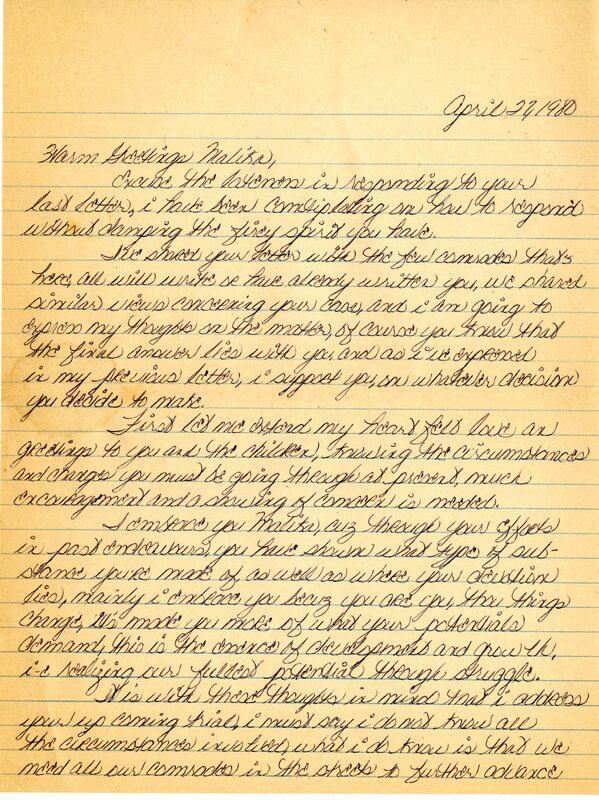 April 27, 1980
Warm Greetings Malika,
Excuse the lateness in responding to your
last letter, i have been contemplating on how to respond
without damping the firey spirit you have.
I've shared your letter with the few comrades that's
here, all will write or have already written you, we shared
similar views concerning your case, and i am going to
express my thoughts on the matter, of course you know that
the final answer lies with you, and as i've expressed
in my previous letter, i support you, on whatever decision
you decide to make.
First let me extend my heart felt love an
greetings to you and the children, knowing the circumstances
and changes you must be going though at present, much
encouagement and a showing of concern is needed.
I embrace you Malika, cuz through your efforts
in past endeavors, you have shown what type of sub-
stance you're made of, as well as where your devotion
lies, mainly i embrace you becuz you are you, thou things
change, its made you more of what your potentials
demand, this is the essence of development and growth,
i-e realizing our fullest potential though struggle.
It is with these thoughts in mind that i address
your up coming trial, i must say i do not know all
the circumstances involved, what i do know is that we
need all our comrades in the streets to further advance